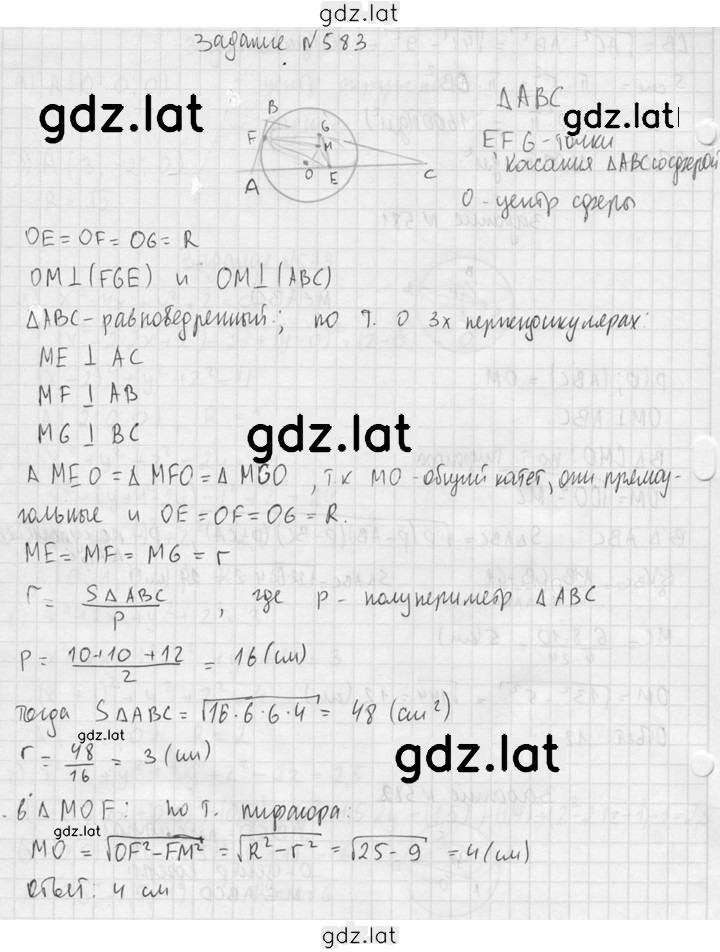 gdz.lat
Задание №583
gdz.lat
B
G
F
M
O
E
A
C
gdz.lat
ΔABC
E F G - точки
касания ΔABC со сферой
O - центр сферы
OE = OF = OG = R
OM⊥(FGE) и OM⊥(ABC)
ΔABC - равнобедренный; по т. о 3х перпендикулярах:
ME ⊥ AC
MF ⊥ AB
MG ⊥ BC
gdz.lat
Δ MEO = Δ MFO = Δ MGO, т.к MO - общий катет, они прямоу-
гольные и OE = OF = OG = R.
ME = MF = MG = r
r = SΔABC / p, где p - полупериметр ΔABC
p = (10+10+12) / 2 = 16 (см)
тогда SΔABC = √(16·6·6·4) = 48 (см²)
gdz.lat
r = 48/16 = 3 (см)
gdz.lat
В ΔMOF: по т. пифагора:
gdz.lat
MO = √(OF²-FM²) = √(R²-r²) = √(25-9) = 4 (см)
ответ: 4 см
gdz.lat